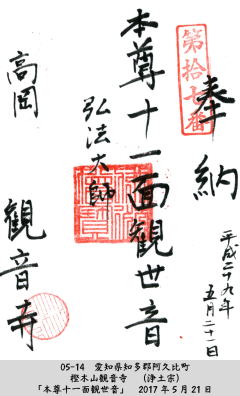 第拾七番
奉納
平成二十九年
五月二十一日
本尊十一面観世音
弘法大師
高岡
観音寺
05-14 愛知県知多郡阿久比町
樫木山観音寺 (浄土宗)
「本尊十一面観世音」 2017年5月21日